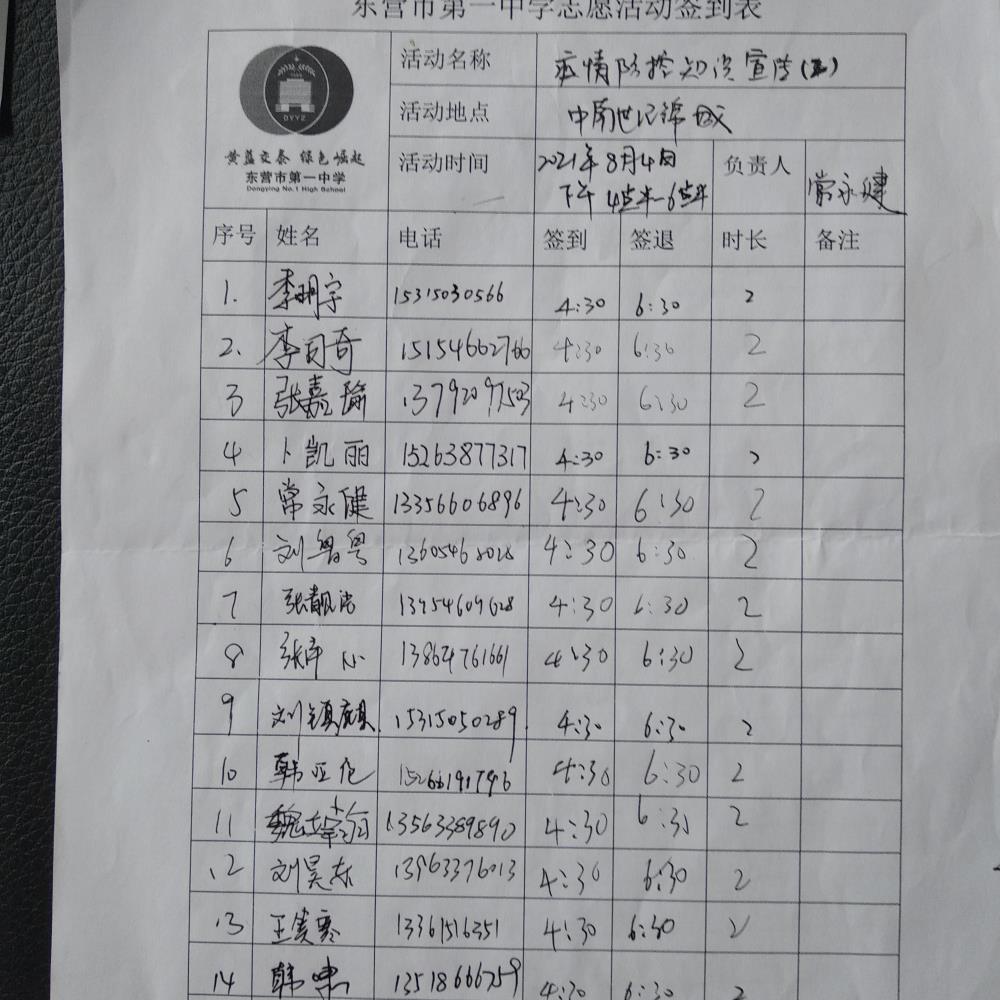 东营市第一中学志愿活动签到表
DYYZ
黄蓝交泰 绿色崛起
东营市第一中学
Dongying No.1 High School
活动名称 疫情防控知识宣传(五)
活动地点 中南世纪锦城
活动时间 2021年8月4日 下午4点半-6点半 负责人 常永健
序号 姓名 电话 签到 签退 时长 备注
1. 李明宇 15315030566 4:30 6:30 2
2. 李百奇 15154662766 4:30 6:30 2
3 张嘉瑜 13792097503 4:30 6:30 2
4 卜凯丽 15263877317 4:30 6:30 2
5 常永健 13356606896 4:30 6:30 2
6 刘粤 4:30 6:30 2
7 张靓洁 13954609628 4:30 6:30 2
8 张 13864761661 4:30 6:30 2
9 刘镇麒 15315050289 4:30 6:30 2
10 韩亚伦 4:30 6:30 2
11 魏 13563389890 4:30 6:30 2
12 刘昊东 13963376013 4:30 6:30 2
13 王 13361516351 4:30 6:30 2
14 韩啸 13518666759 4:30 6:30 2